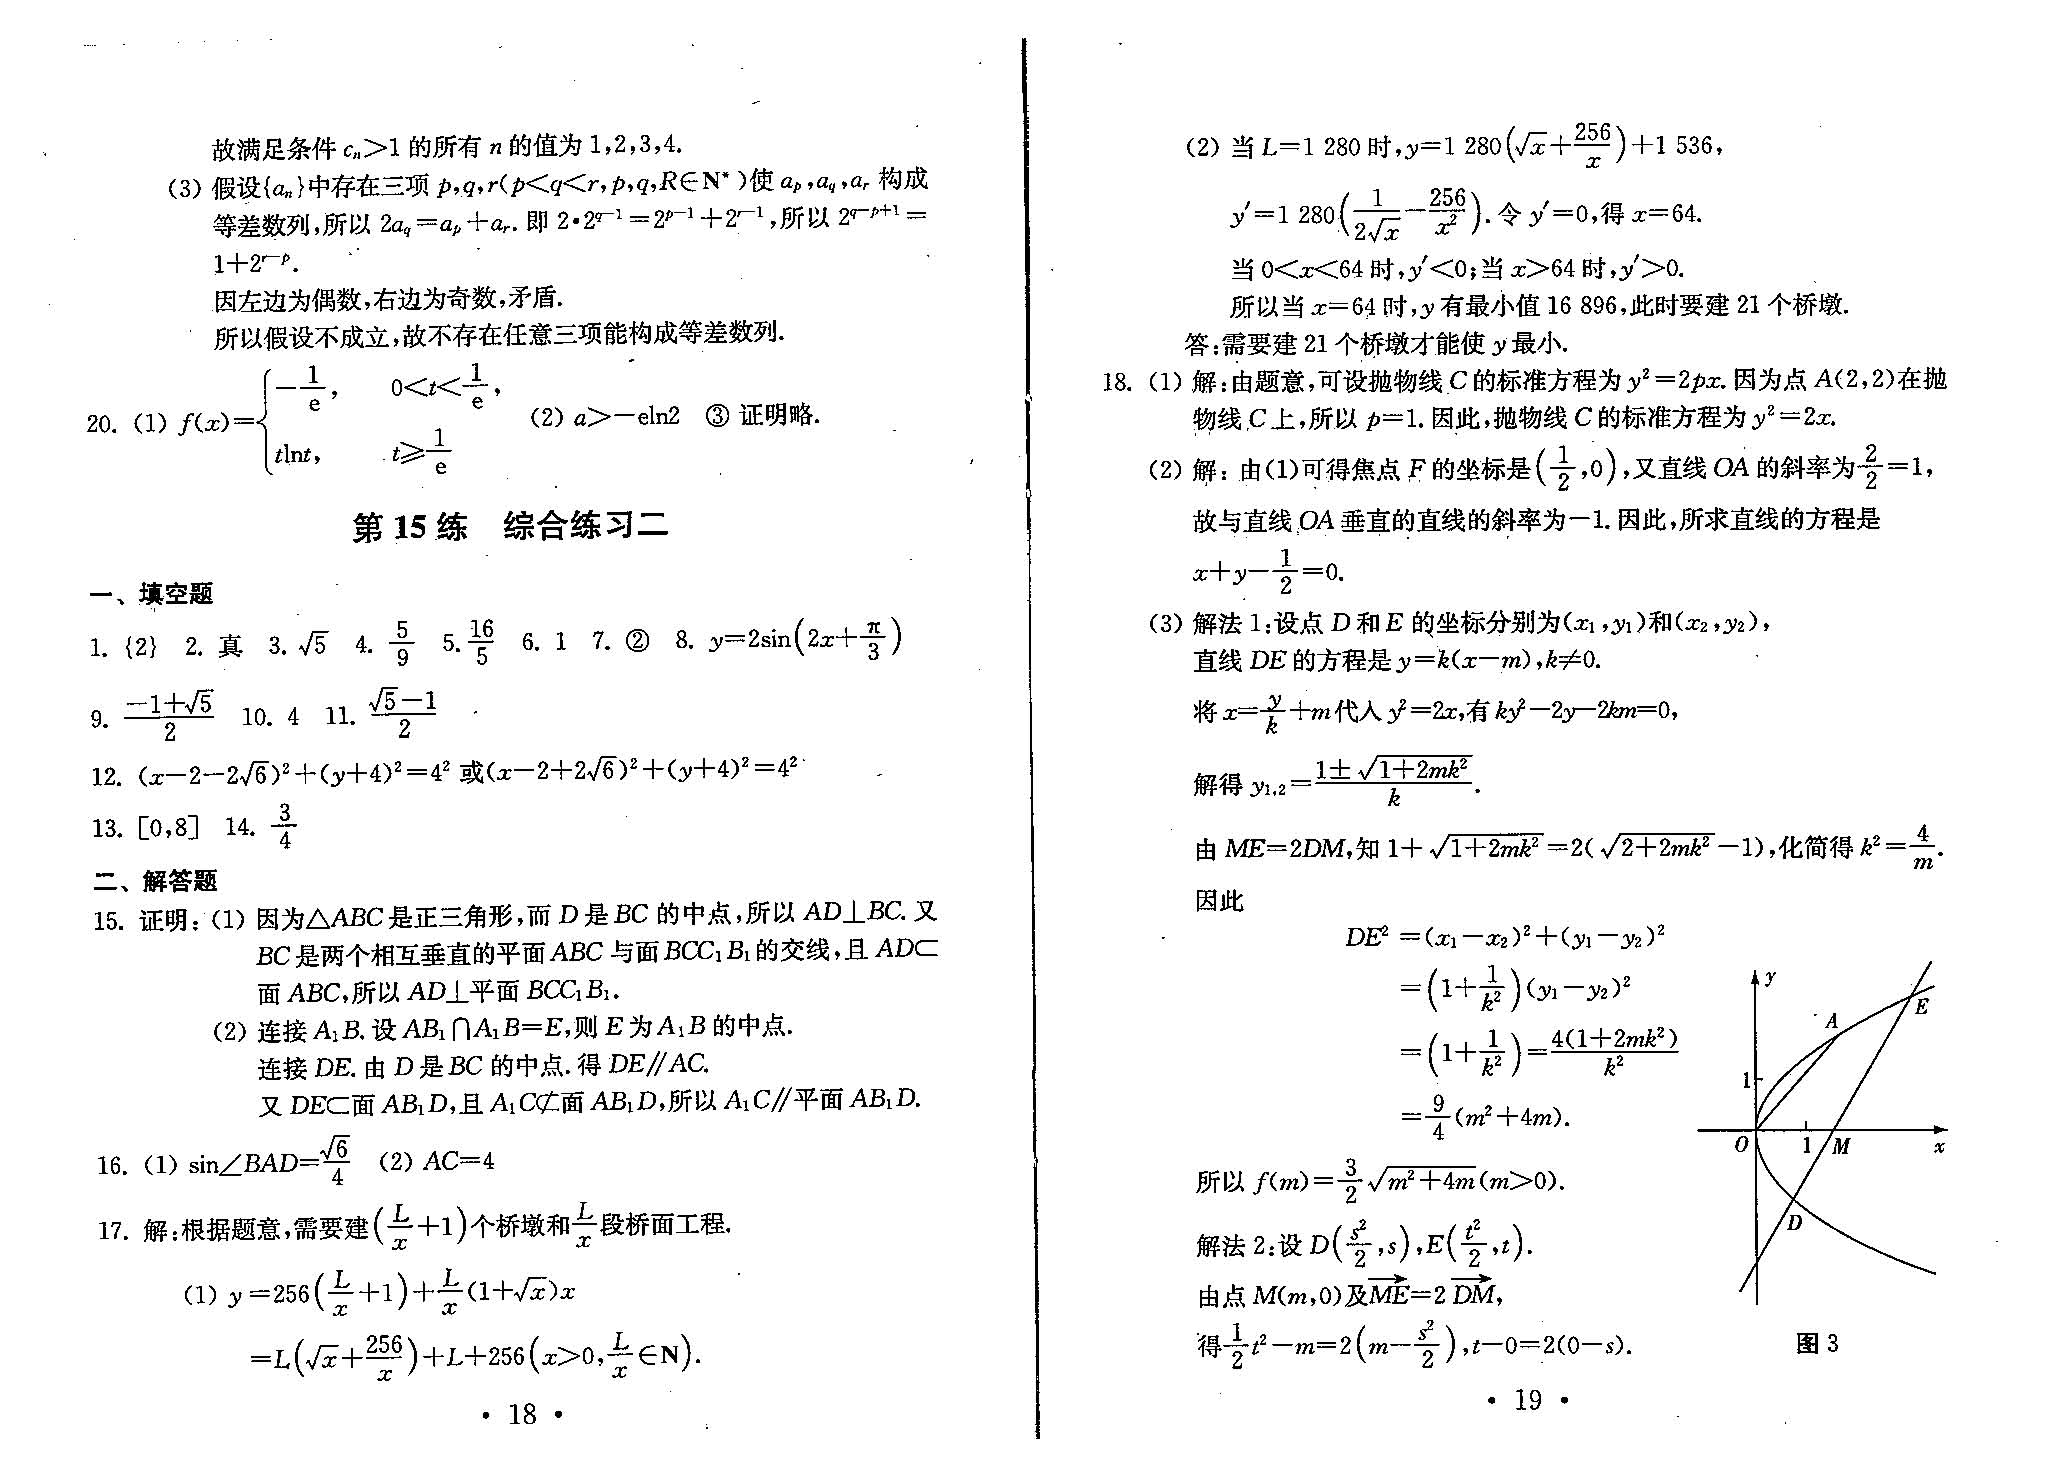 故满足条件 cₙ>1 的所有 n 的值为 1,2,3,4.
(3) 假设{aₙ}中存在三项 p,q,r(p<q<r,p,q,R∈N*)使 aₚ,a_q,aᵣ 构成
等差数列,所以 2a_q=aₚ+aᵣ. 即 2•2^{q-1}=2^{p-1}+2^{r-1},所以 2^{q-p+1}=
1+2^{r-p}.
因左边为偶数,右边为奇数,矛盾.
所以假设不成立,故不存在任意三项能构成等差数列.
20. (1) f(x)={-1/e, 0<t<1/e, tlnt, t⩾1/e (2) a>-eln2 ③ 证明略.
第 15 练 综合练习二
一、填空题
1. {2} 2. 真 3. √5 4. 5/9 5. 16/5 6. 1 7. ② 8. y=2sin(2x+π/3)
9. (-1+√5)/2 10. 4 11. (√5-1)/2
12. (x-2-2√6)²+(y+4)²=4² 或(x-2+2√6)²+(y+4)²=4²
13. [0,8] 14. 3/4
二、解答题
15. 证明: (1) 因为△ABC 是正三角形,而 D 是 BC 的中点,所以 AD⊥BC. 又
BC 是两个相互垂直的平面 ABC 与面 BCC₁B₁ 的交线,且 AD⊂
面 ABC,所以 AD⊥平面 BCC₁B₁.
(2) 连接 A₁B. 设 AB₁∩A₁B=E,则 E 为 A₁B 的中点.
连接 DE. 由 D 是 BC 的中点. 得 DE∥AC.
又 DE⊂面 AB₁D,且 A₁C⊄面 AB₁D,所以 A₁C∥平面 AB₁D.
16. (1) sin∠BAD=√6/4 (2) AC=4
17. 解:根据题意,需要建(L/x+1)个桥墩和L/x段桥面工程.
(1) y=256(L/x+1)+L/x(1+√x)x
=L(√x+256/x)+L+256(x>0,L/x∈N).
• 18 •
(2) 当 L=1 280 时,y=1 280(√x+256/x)+1 536,
y′=1 280(1/(2√x)-256/x²). 令 y′=0,得 x=64.
当 0<x<64 时,y′<0;当 x>64 时,y′>0.
所以当 x=64 时,y 有最小值 16 896,此时要建 21 个桥墩.
答:需要建 21 个桥墩才能使 y 最小.
18. (1) 解:由题意,可设抛物线 C 的标准方程为 y²=2px. 因为点 A(2,2)在抛
物线 C 上,所以 p=1. 因此,抛物线 C 的标准方程为 y²=2x.
(2) 解: 由(1)可得焦点 F 的坐标是(1/2,0),又直线 OA 的斜率为2/2=1,
故与直线 OA 垂直的直线的斜率为-1. 因此,所求直线的方程是
x+y-1/2=0.
(3) 解法 1:设点 D 和 E 的坐标分别为(x₁,y₁)和(x₂,y₂),
直线 DE 的方程是 y=k(x-m),k≠0.
将 x=y/k+m代入 y²=2x,有 ky²-2y-2km=0,
解得 y₁,₂=(1±√(1+2mk²))/k.
由 ME=2DM,知 1+√(1+2mk²)=2(√(2+2mk²)-1),化简得 k²=4/m.
因此
DE²=(x₁-x₂)²+(y₁-y₂)²
=(1+1/k²)(y₁-y₂)²
=(1+1/k²)=4(1+2mk²)/k²
=9/4(m²+4m).
所以 f(m)=3/2√(m²+4m)(m>0).
解法 2:设 D(s²/2,s),E(t²/2,t).
由点 M(m,0)及ME→=2 DM→,
得1/2t²-m=2(m-s²/2),t-0=2(0-s).
y
E
A
1
O
1
M
x
D
图 3
• 19 •